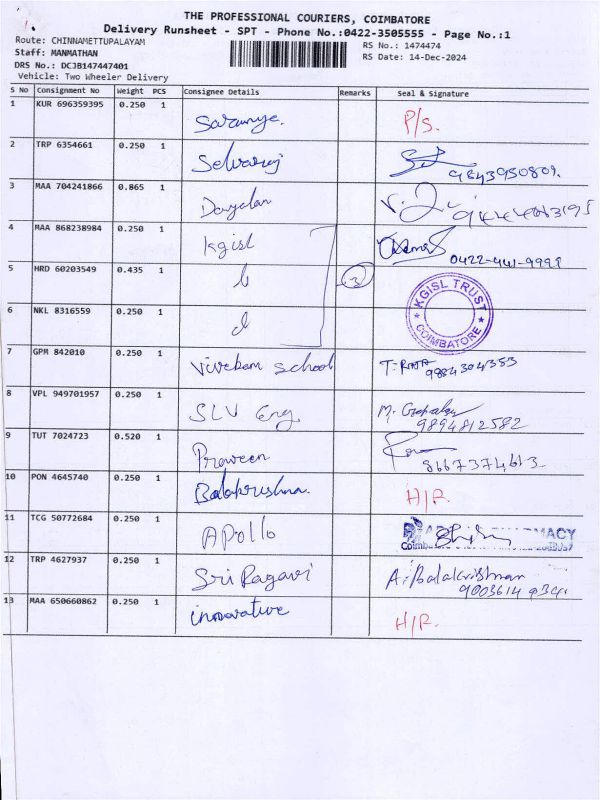 THE PROFESSIONAL COURIERS, COIMBATORE
Delivery Runsheet - SPT - Phone No.:0422-3505555 - Page No.:1
Route: CHINNAMETTUPALAYAM
RS No.: 1474474
Staff: MANMATHAN
RS Date: 14-Dec-2024
DRS No.: DCJB147447401
Vehicle: Two Wheeler Delivery
S No Consignment No Weight PCS Consignee Details Remarks Seal & Signature
1 KUR 696359395 0.250 1 Saranya. P/S.
2 TRP 6354661 0.250 1 Selvaraj 9843950809.
3 MAA 704241866 0.865 1 Dayalan
4 MAA 868238984 0.250 1 kgisl 0422-441-9999
5 HRD 60203549 0.435 1 3
KGISL TRUST
COIMBATORE
6 NKL 8316559 0.250 1
7 GPM 842010 0.250 1 Vivekam school 9884304353
8 VPL 949701957 0.250 1 SLV Eng M. Gopalan 9894812582
9 TUT 7024723 0.520 1 Praveen 8667374613
10 PON 4645740 0.250 1 Balakrishna. H/R.
11 TCG 50772684 0.250 1 Apollo
12 TRP 4627937 0.250 1 Sri Ragavi A. Balakrishnan
13 MAA 650660862 0.250 1 innovative H/R.